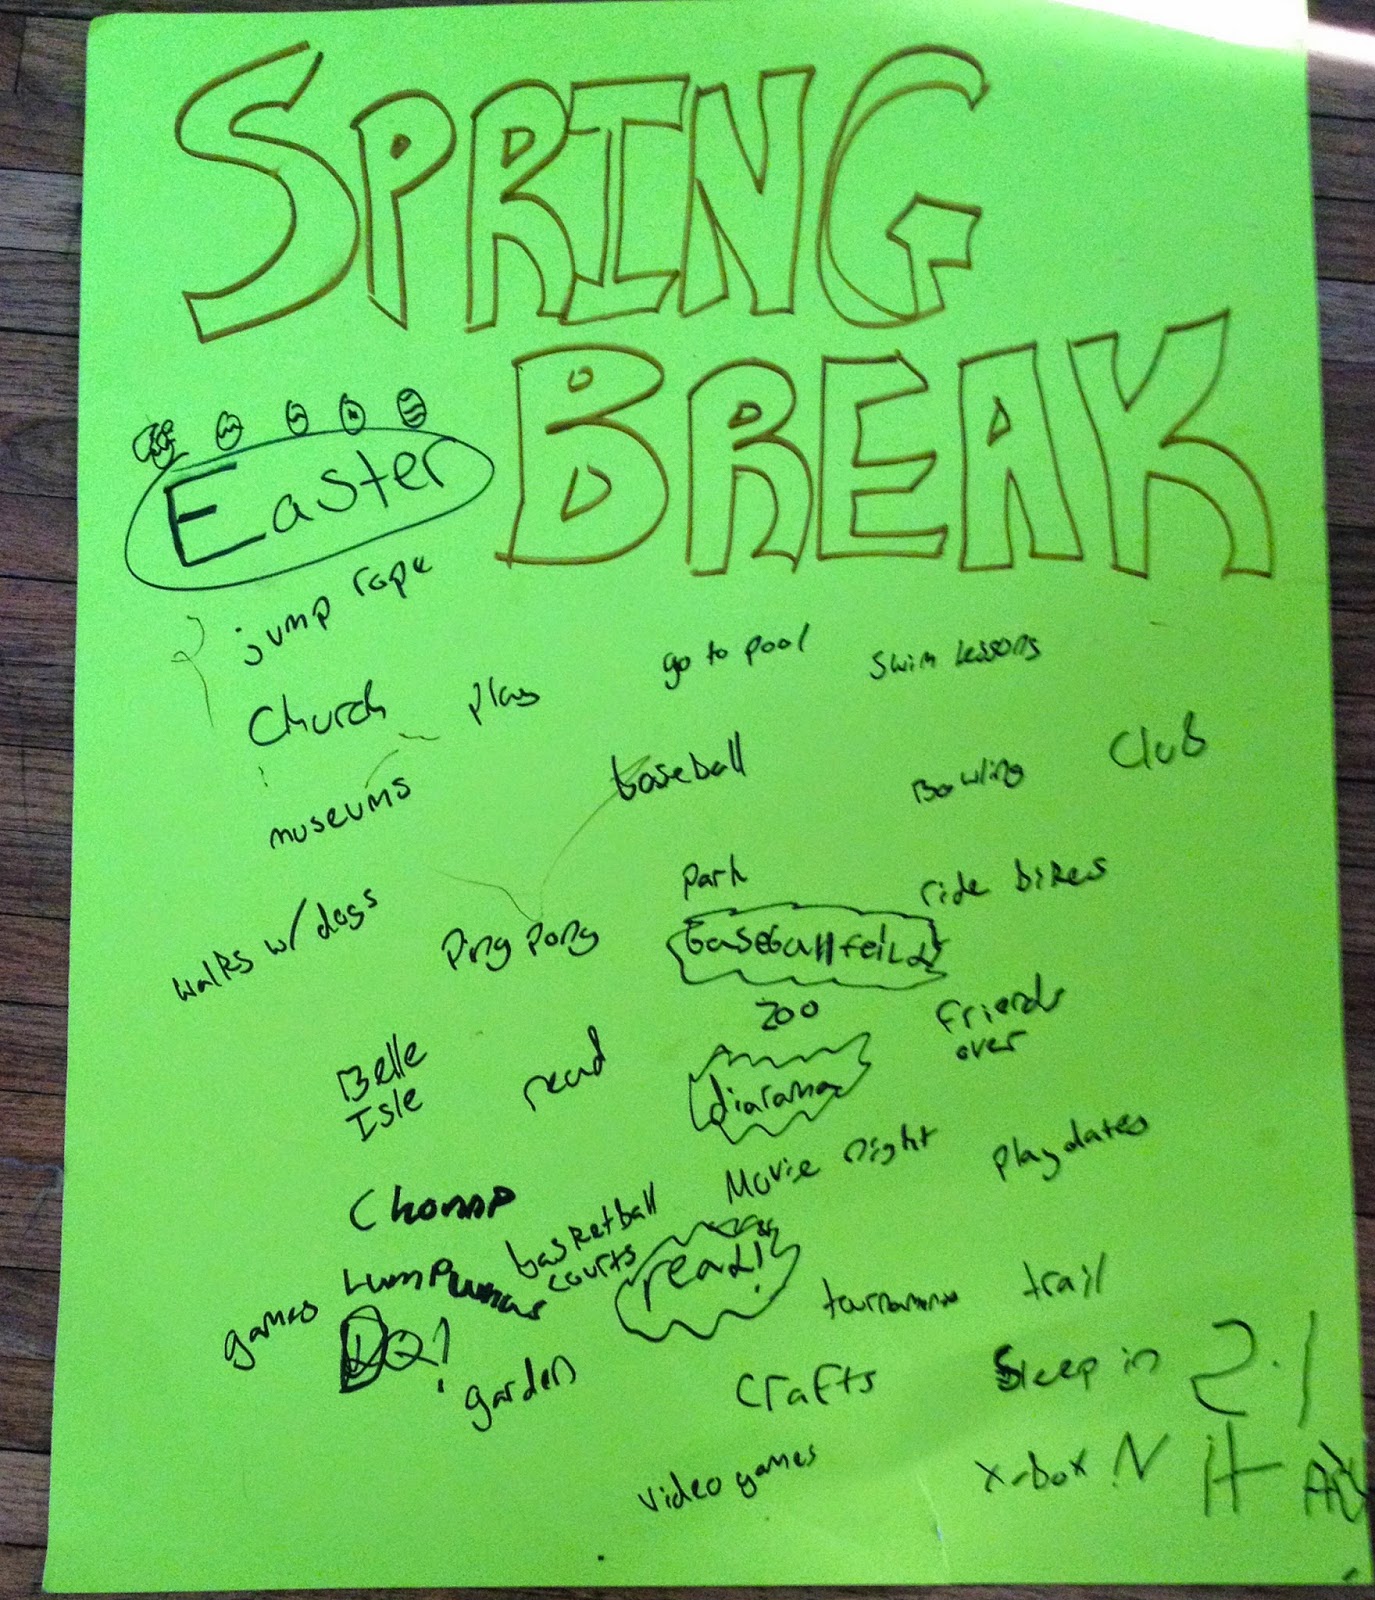 SPRING
BREAK
Easter
jump rope
go to pool
swim lessons
Church
play
museums
baseball
Bowling
Club
walks w/ dogs
Ping pong
Park
ride bikes
baseball feild
zoo
friends
over
Belle
Isle
read
diarama
Chomp
basketball
courts
Movie night
playdates
games
Lump
read!
trail
DQ!
garden
crafts
Sleep in
video games
x-box